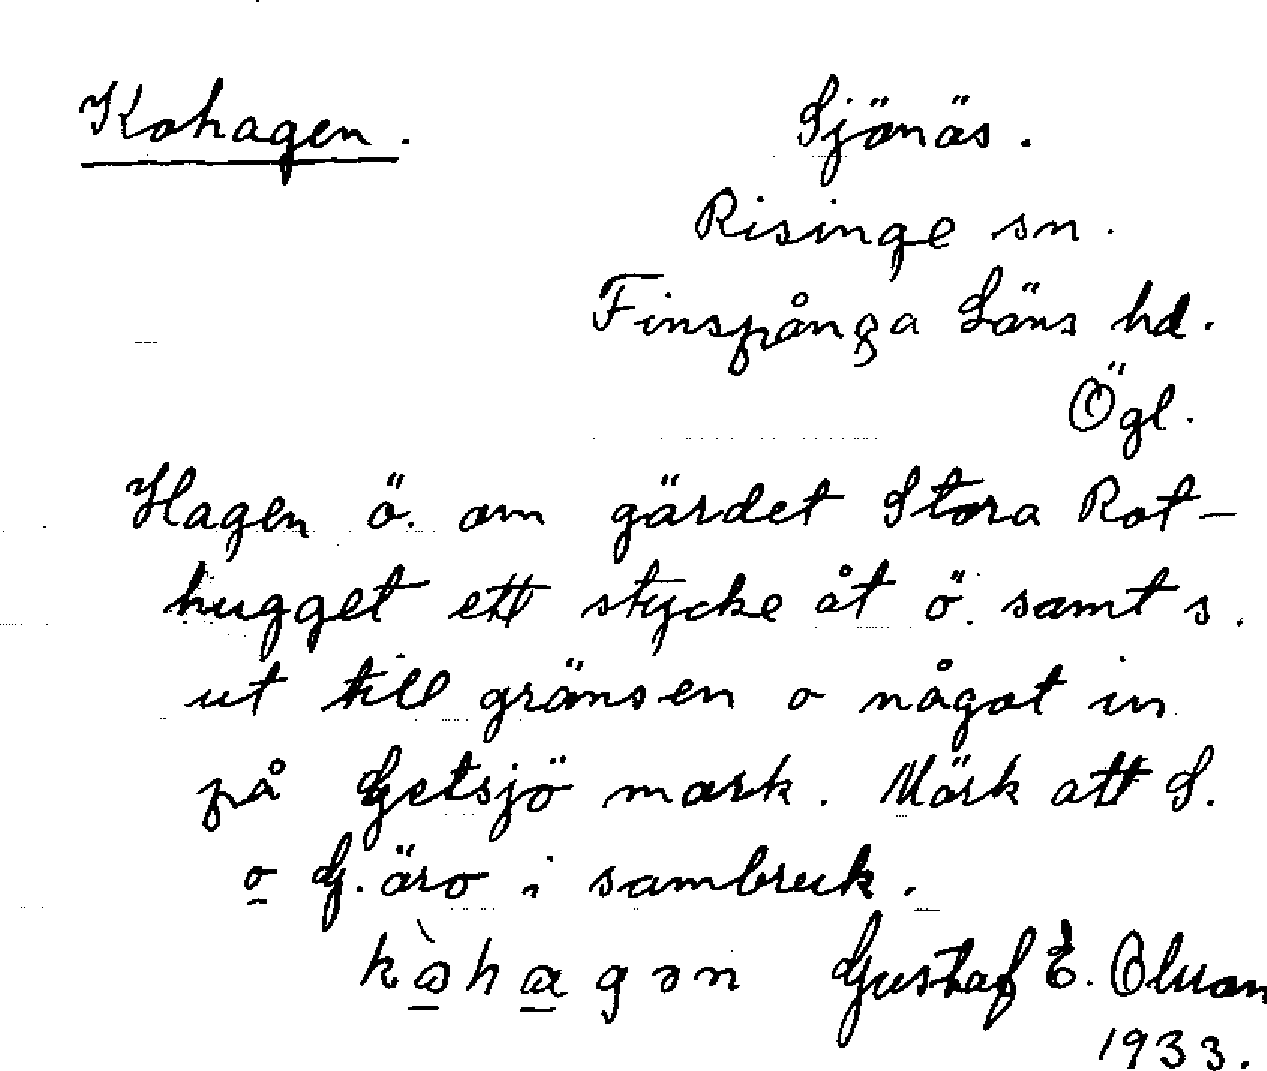 Kohagen. Sjönäs.
Risinge sn.
Finspånga Läns hd.
Ögl.
Hagen ö. om gärdet Stora Rot-
hugget ett stycke åt ö. samt s.
ut till gränsen o något in
på Getsjö mark. Märk att S.
o G. äro i sambruk.
Gustaf E. Olson
1933.